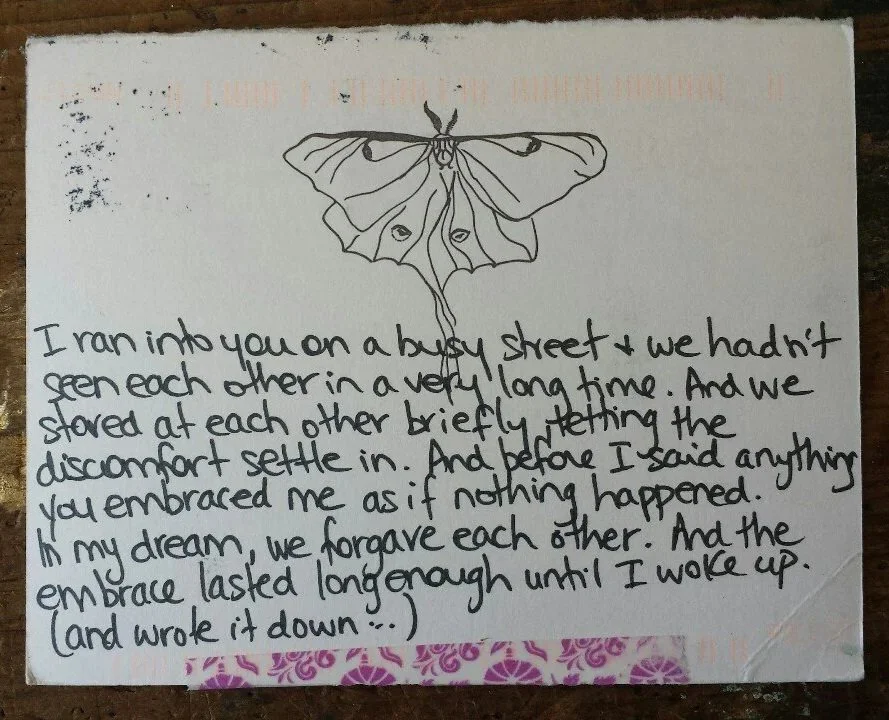 I ran into you on a busy street & we hadn't
seen each other in a very long time. And we
stared at each other briefly, letting the
discomfort settle in. And before I said anything
you embraced me as if nothing happened.
In my dream, we forgave each other. And the
embrace lasted long enough until I woke up.
(and wrote it down...)